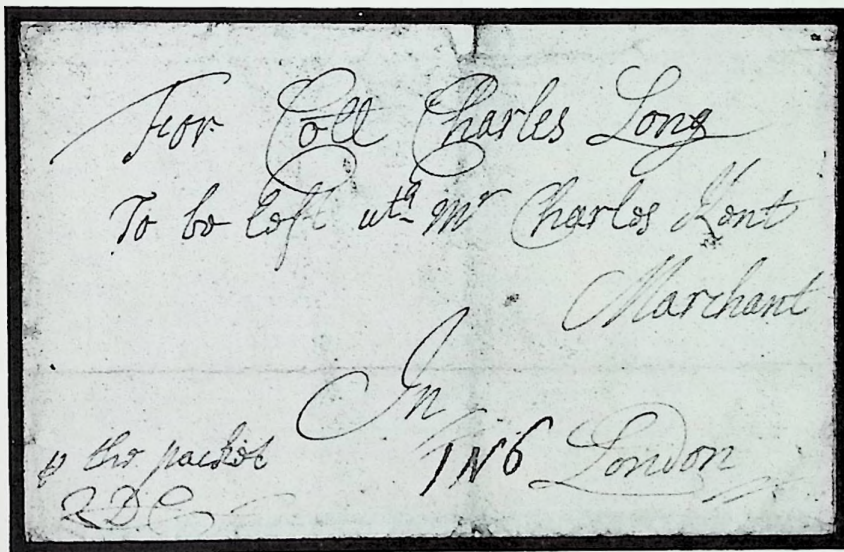 For Coll Charles Long
To be left wth Mr Charles Kent
Marchant
In
London
1N6
p the packet
QDC